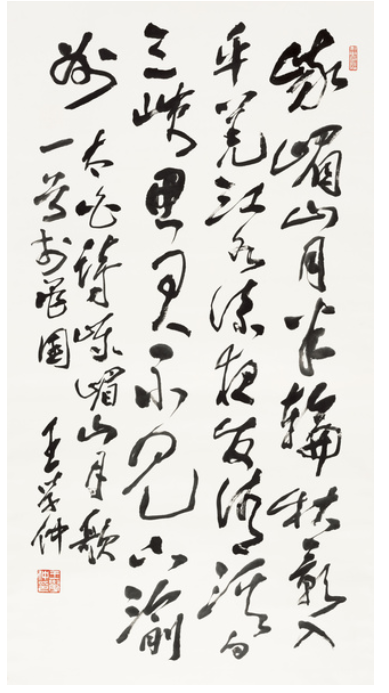 峨嵋山月半輪秋影入
平羌江水流夜发清溪向
三峡思君不见下渝
州
太白詩峨嵋山月歌
一首於黾園
王学仲